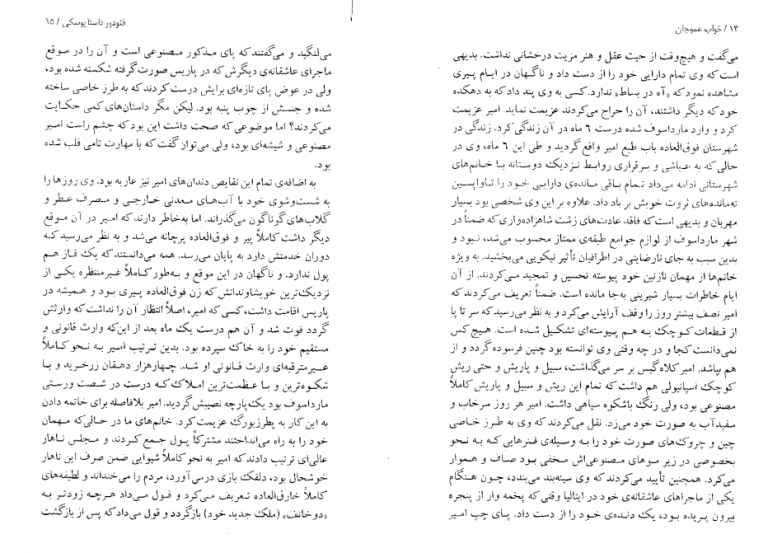 ۱۴ / خواب عموجان
می‌گفت و هیچ‌وقت از حیث عقل و هنر مزیت درخشانی نداشت. بدیهی
است که وی تمام دارایی خود را از دست داد و ناگهان در ایام پیری
مشاهده نمود که «آه در بساط» ندارد. کسی به وی پند داد که به دهکده
خود که دیگر داشتند، آن را حراج می‌کردند عزیمت نماید. امیر عزیمت
کرد و وارد مارداسوف شده درست ۶ ماه در آن زندگی کرد. زندگی در
شهرستان فوق‌العاده باب طبع امیر واقع گردید و طی این ۶ ماه، وی در
حالی که به عیاشی و برقراری روابط نزدیک دوستانه با خانم‌های
شهرستانی ادامه می‌داد تمام باقی مانده‌ی دارایی خود را تا واپسین
ته‌مانده‌های ثروت خویش بر باد داد. علاوه بر این وی شخصی بود بسیار
مهربان و بدیهی است که فاقد عادت‌های زشت شاهزاده‌واری که ضمناً در
شهر مارداسوف از لوازم جوامع طبقه‌ی ممتاز محسوب می‌شد، نبود و
بدین سبب به جای نارضایتی در اطرافیان تأثیر نیکویی می‌بخشید. به ویژه
خانم‌ها از مهمان نازنین خود پیوسته تحسین و تمجید می‌کردند. از آن
ایام خاطرات بسیار شیرینی به‌جا مانده است. ضمناً تعریف می‌کردند که
امیر نصف بیشتر روز را وقف آرایش می‌کرد و به نظر می‌رسید که سر تا پا
از قطعات کوچک به هم پیوسته‌ای تشکیل شده است. هیچ کس
نمی‌دانست کجا و در چه وقتی وی توانسته بود چنین فرسوده گردد و از
هم بپاشد. امیر کلاه‌گیس بر سر می‌گذاشت، سبیل و پاریش و حتی ریش
کوچک اسپانیولی هم داشت که تمام این ریش و سبیل و پاریش کاملاً
مصنوعی بود، ولی رنگ باشکوه سیاهی داشت. امیر هر روز سرخاب و
سفیدآب به صورت خود می‌زد. نقل می‌کردند که وی به طرز خاصی
چین و چروک‌های صورت خود را به وسیله‌ی فنرهایی که به نحو
بخصوصی در زیر موهای مصنوعی‌اش مخفی بود صاف و هموار
می‌کرد. همچنین تأیید می‌کردند که وی سینه‌بند می‌بندد، چون هنگام
یکی از ماجراهای عاشقانه‌ی خود در ایتالیا وقتی که پخمه وار از پنجره
بیرون پریده بود، یک دنده‌ی خود را از دست داد. پای چپ امیر
فئودور داستایوسکی / ۱۵
می‌لنگید و می‌گفتند که پای مذکور مصنوعی است و آن را در موقع
ماجرای عاشقانه‌ی دیگرش که در پاریس صورت گرفته شکسته شده بود،
ولی در عوض پای تازه‌ای برایش درست کردند که به طرز خاصی ساخته
شده و جنسش از چوب پنبه بود. لیکن مگر داستان‌های کمی حکایت
می‌کردند؟ اما موضوعی که صحت داشت این بود که چشم راست امیر
مصنوعی و شیشه‌ای بود، ولی می‌توان گفت که با مهارت تامی قلب شده
بود.
به اضافه‌ی تمام این نقایص دندان‌های امیر نیز عاریه بود. وی روزها را
به شست‌وشوی خود با آب‌های معدنی خارجی و مصرف عطر و
گلاب‌های گوناگون می‌گذراند. اما به‌خاطر دارند که امیر در آن موقع
دیگر داشت کاملاً پیر و فوق‌العاده پرچانه می‌شد و به نظر می‌رسید که
دوران خدمتش دارد به پایان می‌رسد. همه می‌دانستند که یک قاز هم
پول ندارد. و ناگهان در این موقع و به‌طور کاملاً غیرمنتظره یکی از
نزدیک‌ترین خویشاوندانش که زن فوق‌العاده پیری بود و همیشه در
پاریس اقامت داشت، کسی که امیر، اصلاً انتظار آن را نداشت که وارثش
گردد فوت شد و آن هم درست یک ماه بعد از این‌که وارث قانونی و
مستقیم خود را به خاک سپرده بود. بدین ترتیب امیر به نحو کاملاً
غیرمترقبه‌ای وارث قانونی او شد. چهارهزار دهقان زرخرید و با
شکوه‌ترین و با عظمت‌ترین املاک که درست در شصت ورستی
مارداسوف بود یک‌پارچه نصیبش گردید. امیر بلافاصله برای خاتمه دادن
به این کار به پطرزبورگ عزیمت کرد. خانم‌های ما در حالی‌که مهمان
خود را به راه می‌انداختند مشترکاً پول جمع کردند و مجلس ناهار
عالی‌ای ترتیب دادند که امیر به نحو کاملاً شیوایی ضمن صرف این ناهار
خوشحال بود، دلقک بازی درمی‌آورد، مردم را می‌خنداند و لطیفه‌های
کاملاً خارق‌العاده تعریف می‌کرد و قول می‌داد هرچه زودتر به
«دوخانف» (ملک جدید خود) بازگردد و قول می‌داد که پس از بازگشت